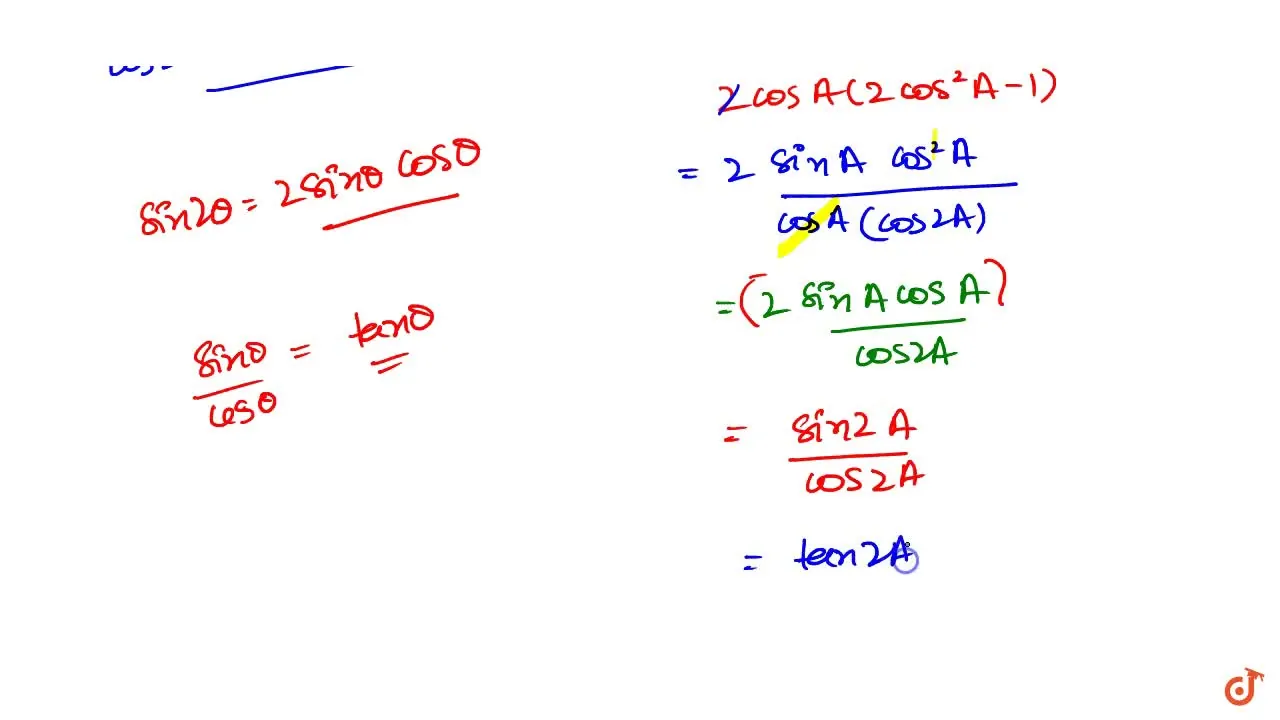 cos
sin2θ = 2sinθ cosθ
sinθ = tanθ
cosθ
2cosA(2cos²A-1)
= 2 sinA cos²A
cosA (cos2A)
= (2 sinA cosA)
cos2A
= sin2A
cos2A
= tan2A